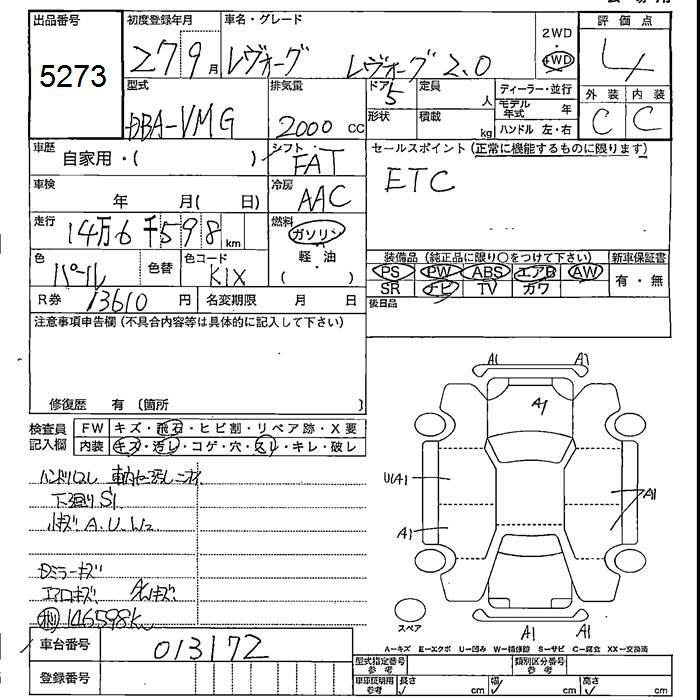 出品番号
5273
初度登録年月
27 9 月
車名・グレード
レヴォーグ レヴォーグ 2.0
2WD
4WD
評価点
4
外装 内装
C C
型式
DBA-VMG
排気量
2000 cc
ドア
5
形状
定員
人
積載
kg
ディーラー・並行
モデル年式 年
ハンドル 左・右
車歴
自家用・( )
シフト
FAT
セールスポイント (正常に機能するものに限ります)
ETC
車検
年 月( 日)
冷房
AAC
走行
14万6千598 km
燃料
ガソリン
軽・油
( )
色
パール
色替
色コード
K1X
装備品 (純正品に限り○をつけて下さい)
PS PW ABS エアB AW
SR ナビ TV カワ
新車保証書
有・無
R券 13610 円
名変期限 月 日
後日品
注意事項申告欄 (不具合内容等は具体的に記入して下さい)
修復歴 有 〔箇所 〕
検査員
記入欄
FW キズ・飛石・ヒビ割・リペア跡・X要
内装 キズ・汚レ・コゲ・穴・スレ・キレ・破レ
ハンドルスレ
下廻りS1
小キズ A.U.W2
Dミラーキズ
エアロキズ
146598K
A1 A1
A1
U1A1
A1
A1
A1 A1
スペア
A-キズ E-エクボ U-凹み W-補修跡 S-サビ C-腐食 XX-交換済
車台番号
013172
登録番号
型式指定番号
参考
類別区分番号
参考
車庫証明用
参考
長さ
cm
幅
cm
高さ
cm